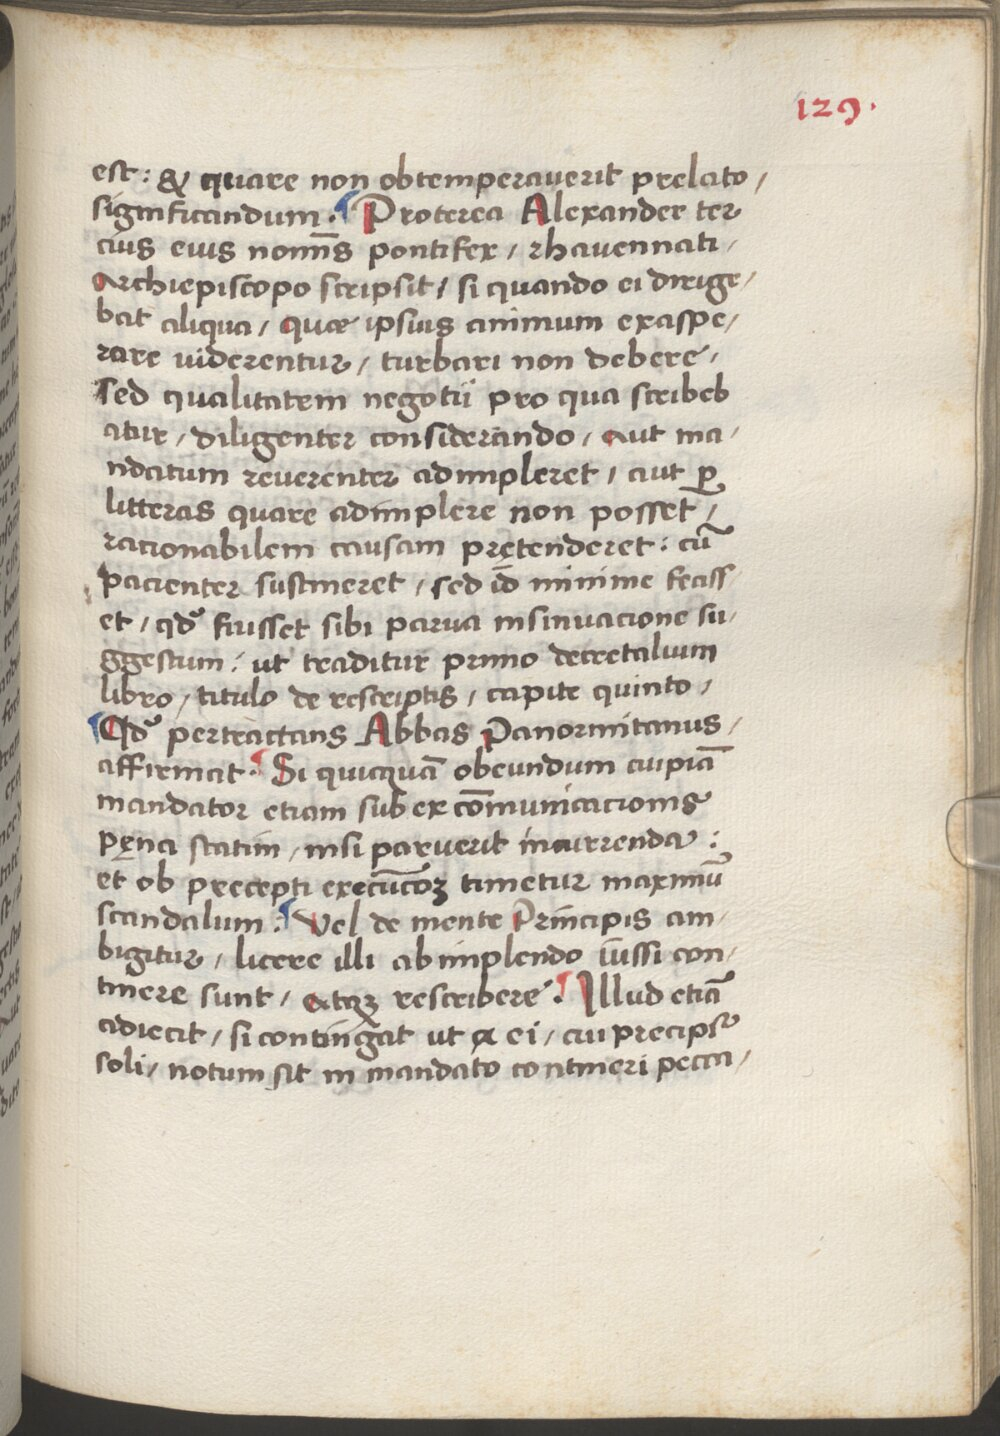 129.
est: & quare non obtemperauerit prelato /
significandum. Proterea Alexander ter
cius eius nomīs pontifex / rhauennati /
Archiepiscopo scripsit / si quando ei dirige /
bat aliqua / quæ ipsius animum exaspe /
rare uiderentur / turbari non debere /
sed qualitatem negotii pro qua scribeb
atur / diligenter considerando / aut ma /
ndatum reuerenter adimpleret / aut ꝑ
litteras quare adimplere non posset /
racionabilem causam prętenderet: cū
pacienter sustineret / sed id minime feciss
et / qđ fuisset sibi parua insinuacione su /
ggestum: ut traditur primo decretalium
libro / titulo de rescriptis / capite quinto /
Qđ pertractans Abbas Panormitanus /
affirmat. Si quicquā obeundum cuipiā
mandator etiam sub excōmunicacionis
pęna statim / nisi paruerit incurrenda:
et ob precepti execucōꝫ timetur maximū
scandalum: Vel de mente Principis am /
bigitur / licere illi ab implendo iussi con /
tinere sunt / atqꝫ rescribere. Illud etiā
adiecit / si contingat ut & ei / cui precipit᷑
soli / notum sit in mandato contineri pecca /